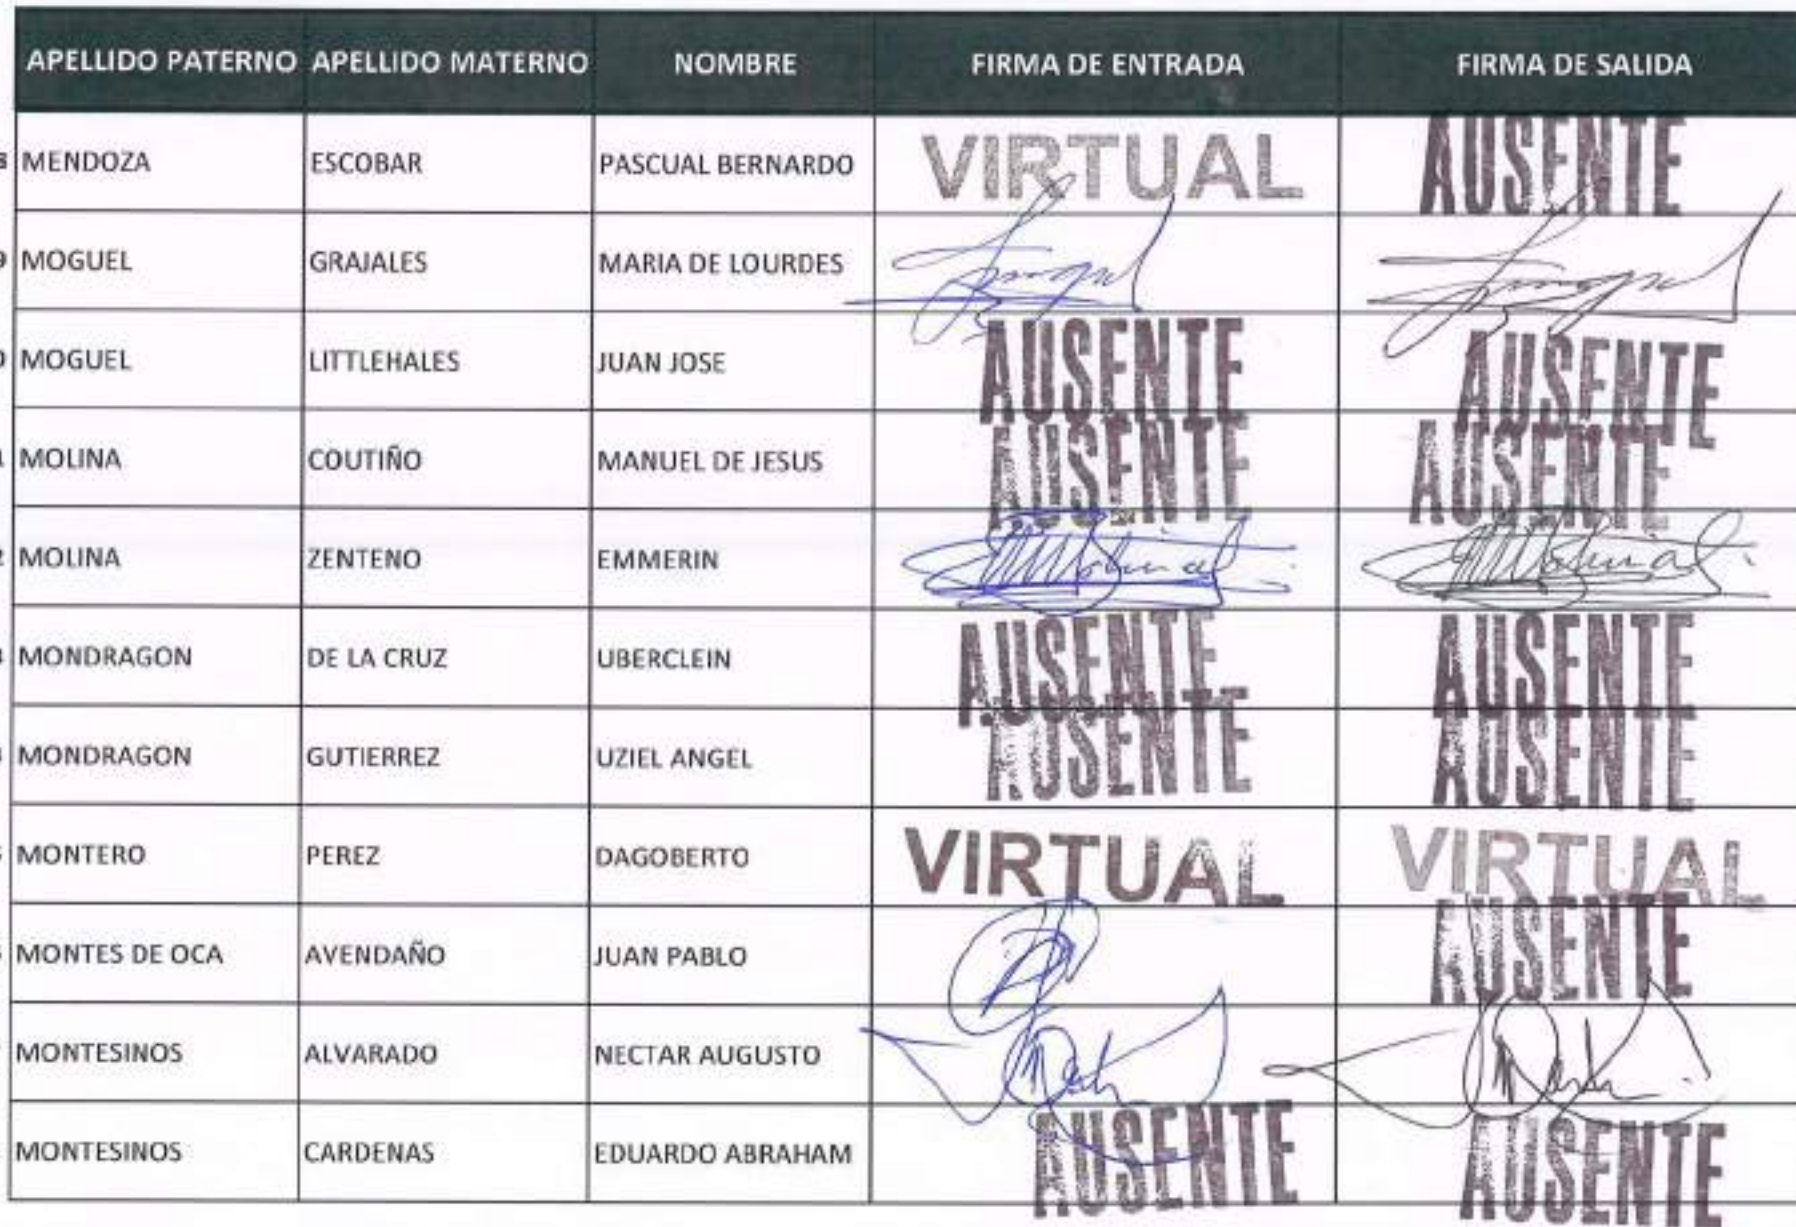 APELLIDO PATERNO APELLIDO MATERNO NOMBRE FIRMA DE ENTRADA FIRMA DE SALIDA
MENDOZA ESCOBAR PASCUAL BERNARDO VIRTUAL AUSENTE
9 MOGUEL GRAJALES MARIA DE LOURDES
MOGUEL LITTLEHALES JUAN JOSE AUSENTE AUSENTE
MOLINA COUTIÑO MANUEL DE JESUS AUSENTE AUSENTE
MOLINA ZENTENO EMMERIN
MONDRAGON DE LA CRUZ UBERCLEIN AUSENTE AUSENTE
MONDRAGON GUTIERREZ UZIEL ANGEL AUSENTE AUSENTE
MONTERO PEREZ DAGOBERTO VIRTUAL VIRTUAL
MONTES DE OCA AVENDAÑO JUAN PABLO AUSENTE
MONTESINOS ALVARADO NECTAR AUGUSTO
MONTESINOS CARDENAS EDUARDO ABRAHAM AUSENTE AUSENTE